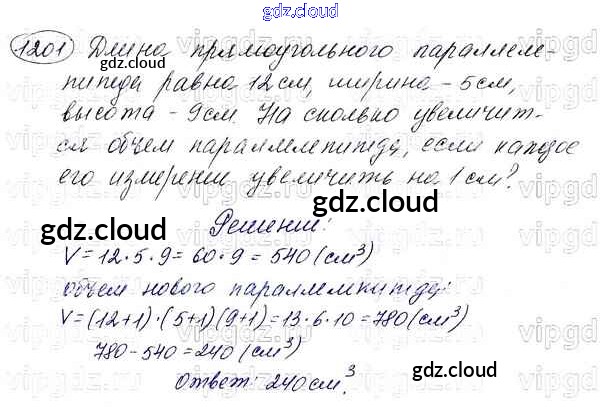 gdz.cloud
1201 Длина прямоугольного параллеле-
пипеда равна 12 см, ширина - 5 см,
высота - 9 см. На сколько увеличит-
ся объем параллелепипеда, если каждое
его измерение увеличить на 1 см?
gdz.cloud
Решение:
gdz.cloud
V = 12 · 5 · 9 = 60 · 9 = 540 (см³)
объем нового параллелепипеда:
V = (12+1) · (5+1) (9+1) = 13 · 6 · 10 = 780 (см³)
780 - 540 = 240 (см³)
gdz.cloud
Ответ: 240 см³.